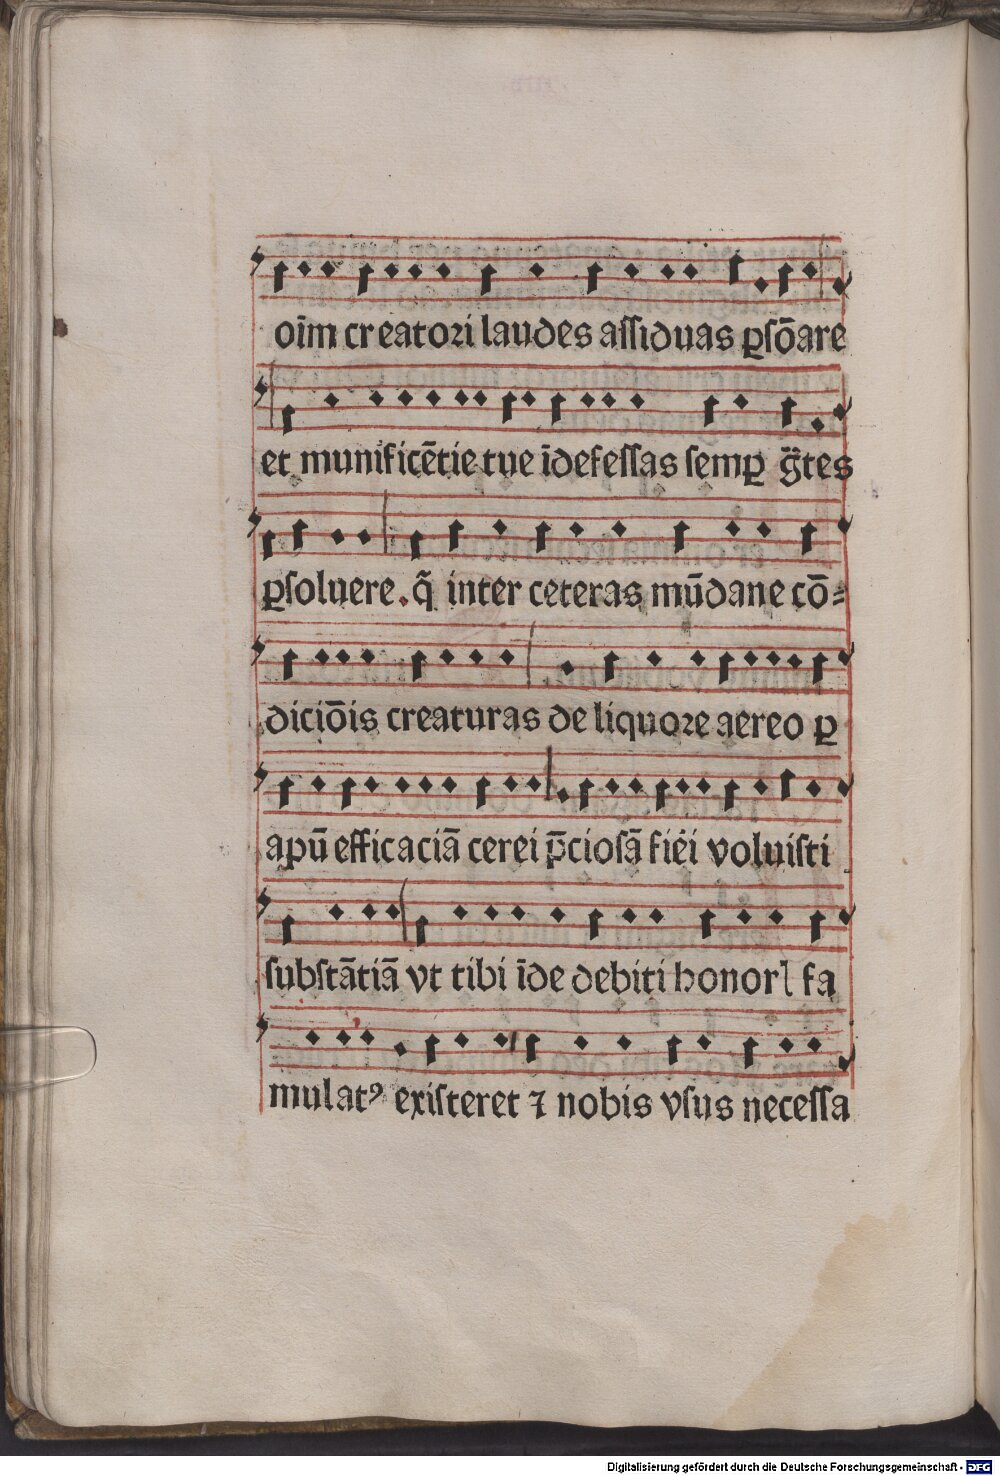 oīm creatori laudes aſſiduas ꝑſōare
et munificētie tue īdefeſſas ſemꝑ gr̄tes
ꝑſoluere. q̄ inter ceteras mūdane cō⸗
diciōis creaturas de liquore aereo ꝑ
apū efficaciā cerei p̄cioſā fiēi voluiſti
ſubſtātiā vt tibi īde debiti honorꝭ fa
mulatꝰ exiſteret ⁊ nobis vſus neceſſa
Digitalisierung gefördert durch die Deutsche Forschungsgemeinschaft - DFG